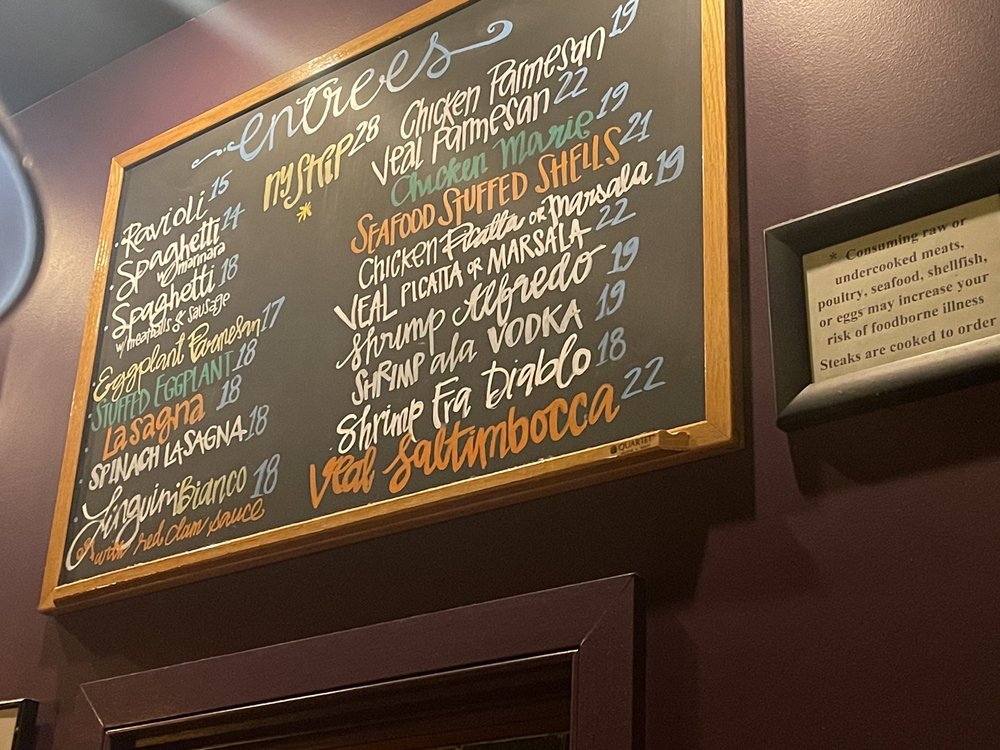 entrees
Ravioli 15
Spaghetti 14
w/ marinara
Spaghetti 18
w/ meatballs & sausage
Eggplant Parmesan 17
STUFFED EGGPLANT 18
Lasagna 18
SPINACH LASAGNA 18
Linguini Bianco 18
or with red clam sauce
ny strip 28
*
Chicken Parmesan 19
Veal Parmesan 22
Chicken Marie 19
SEAFOOD STUFFED SHELLS 21
Chicken Picatta or Marsala 19
VEAL PICATTA or MARSALA 22
Shrimp Alfredo 19
SHRIMP ala VODKA 19
Shrimp Fra Diablo 18
Veal Saltimbocca 22
QUARTET
* Consuming raw or
undercooked meats,
poultry, seafood, shellfish,
or eggs may increase your
risk of foodborne illness
Steaks are cooked to order